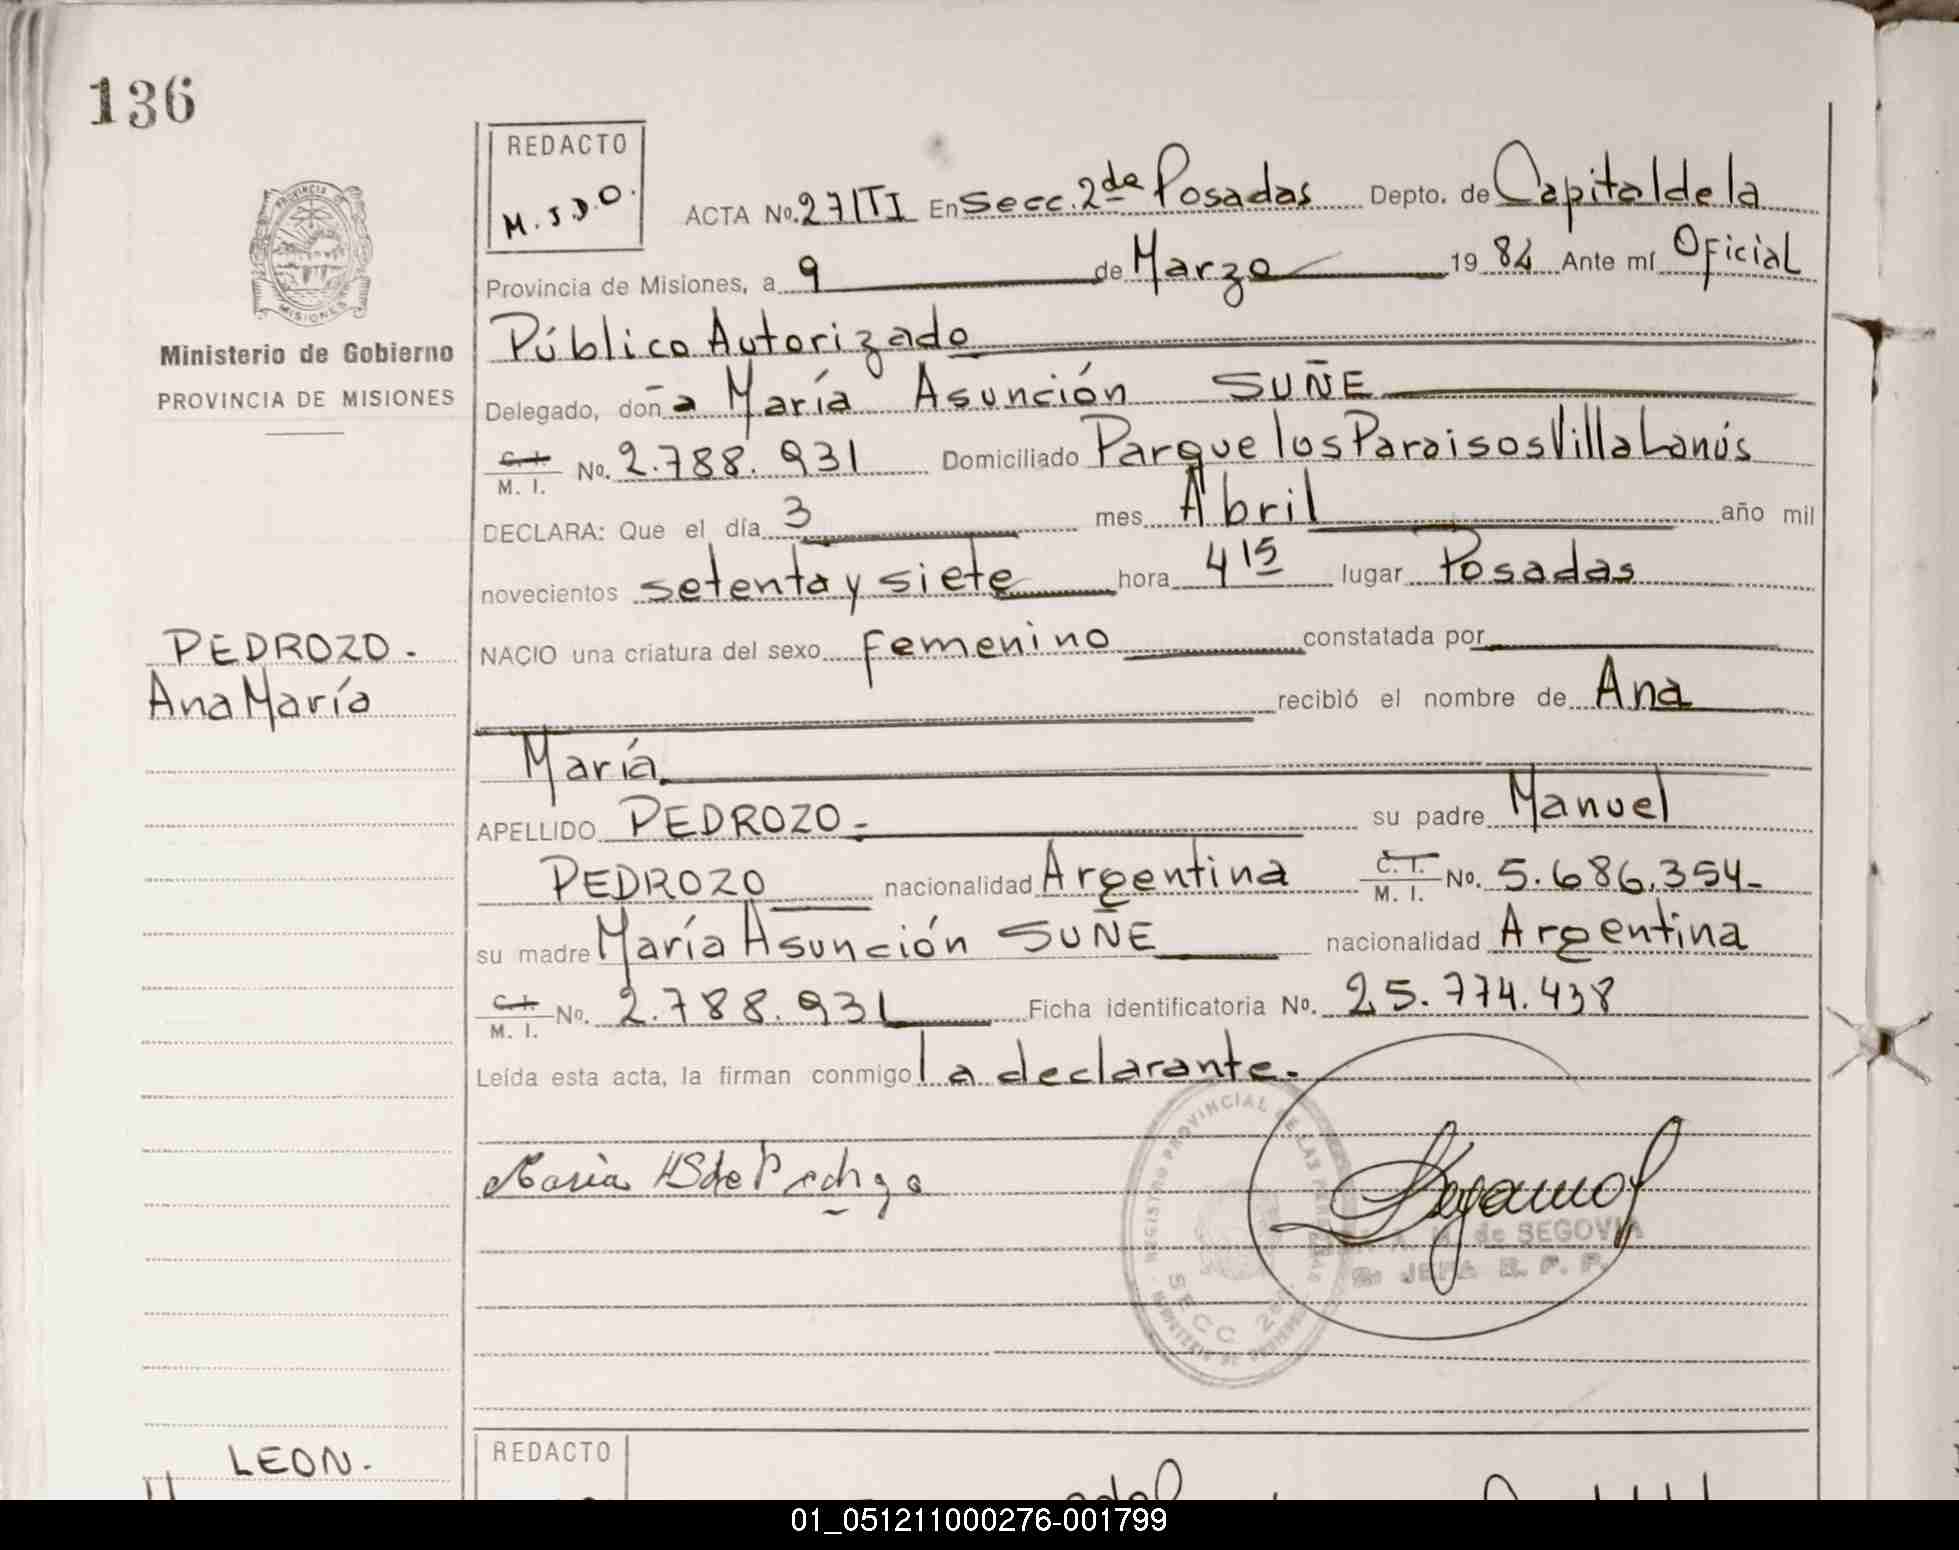 136
REDACTO
M.J.D.O.
ACTA No. 271TI En Secc. 2da Posadas Depto. de Capital de la
Provincia de Misiones, a 9 de Marzo 1984 Ante mí Oficial
Público Autorizado
Delegado, doña María Asunción SUÑE
C.I. M. I. No. 2.788.931 Domiciliado Parque los Paraisos Villa Lanús
DECLARA: Que el día 3 mes Abril año mil
novecientos setenta y siete hora 4 15 lugar Posadas
NACIO una criatura del sexo femenino constatada por
recibió el nombre de Ana
María
APELLIDO PEDROZO su padre Manuel
PEDROZO nacionalidad Argentina C.T. M. I. No. 5.686.354
su madre María Asunción SUÑE nacionalidad Argentina
C.I. M. I. No. 2.788.931 Ficha identificatoria No. 25.774.438
Leída esta acta, la firman conmigo la declarante.
PROVINCIA DE MISIONES
Ministerio de Gobierno
PROVINCIA DE MISIONES
PEDROZO.
Ana María
María
REGISTRO PROVINCIAL DE LAS PERSONAS
SECC 2
de SEGOVIA
JEFA R. P. P.
LEON.
REDACTO
01_051211000276-001799